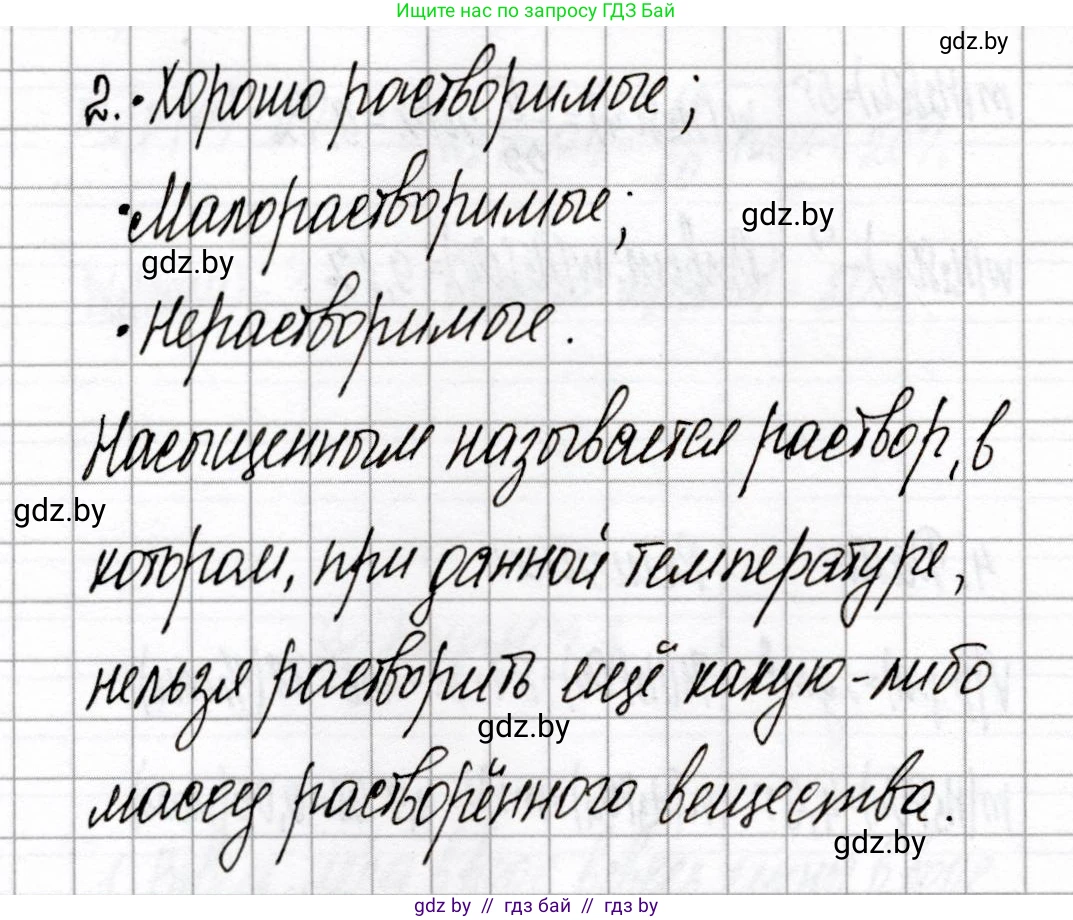 Ищите нас по запросу ГДЗ Бай
gdz.by
2. • Хорошо растворимые;
• Малорастворимые;
gdz.by
gdz.by
• Нерастворимые.
Насыщенным называется раствор, в
gdz.by
котором, при данной температуре,
нельзя растворить ещё какую-либо
gdz.by
массу растворённого вещества.
gdz.by
gdz by // гдз бай // gdz by